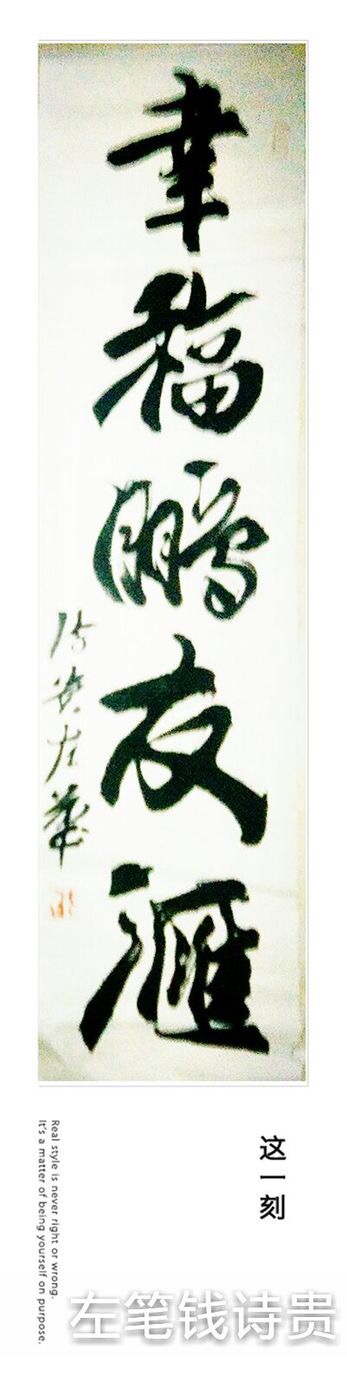 幸福鵬友滙
安左華
这一刻
Real style is never right or wrong.
It's a matter of being yourself on purpose.
左笔钱诗贵